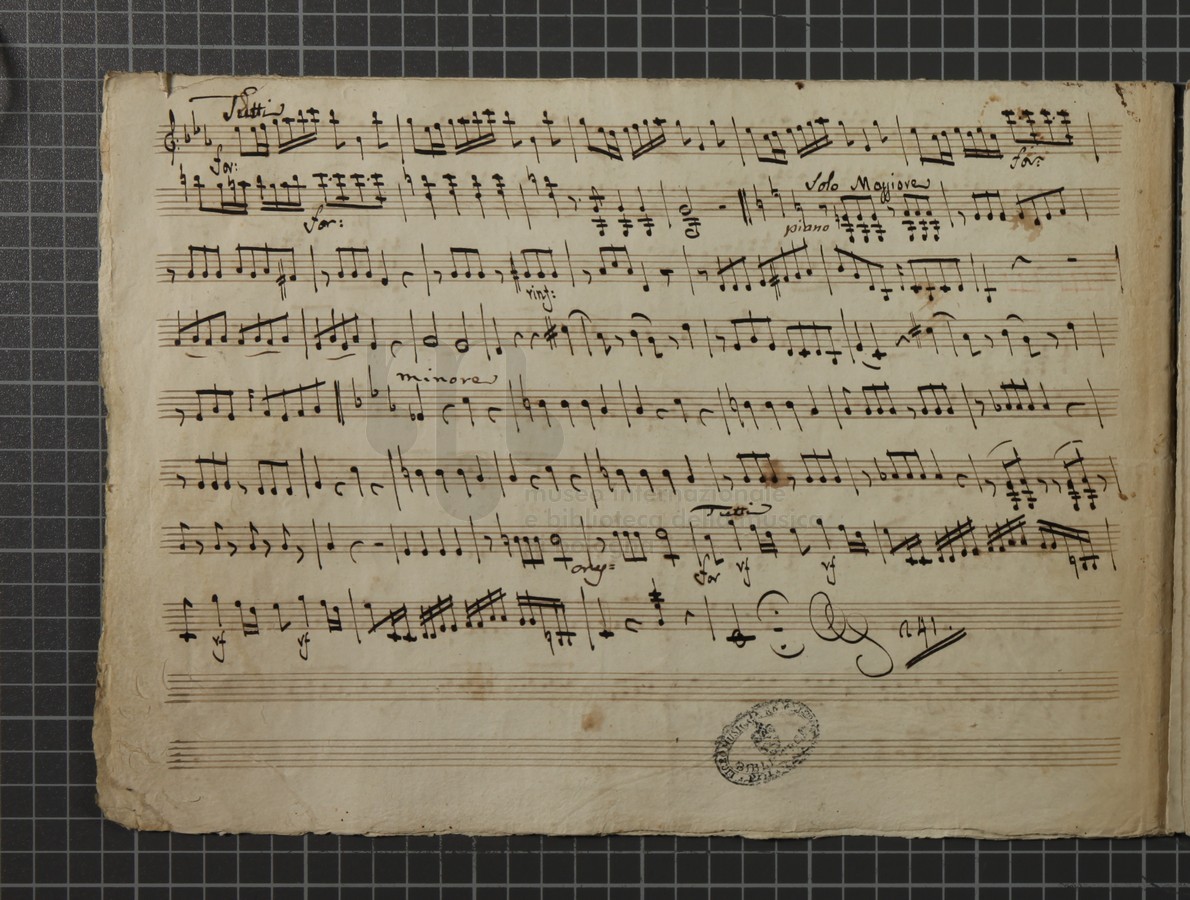 Tutti
for:
for:
Solo Maggiore
for:
piano
rinf:
minore
museo internazionale
e biblioteca della musica
Tutti
for
rf
rf
rf
rf
241.